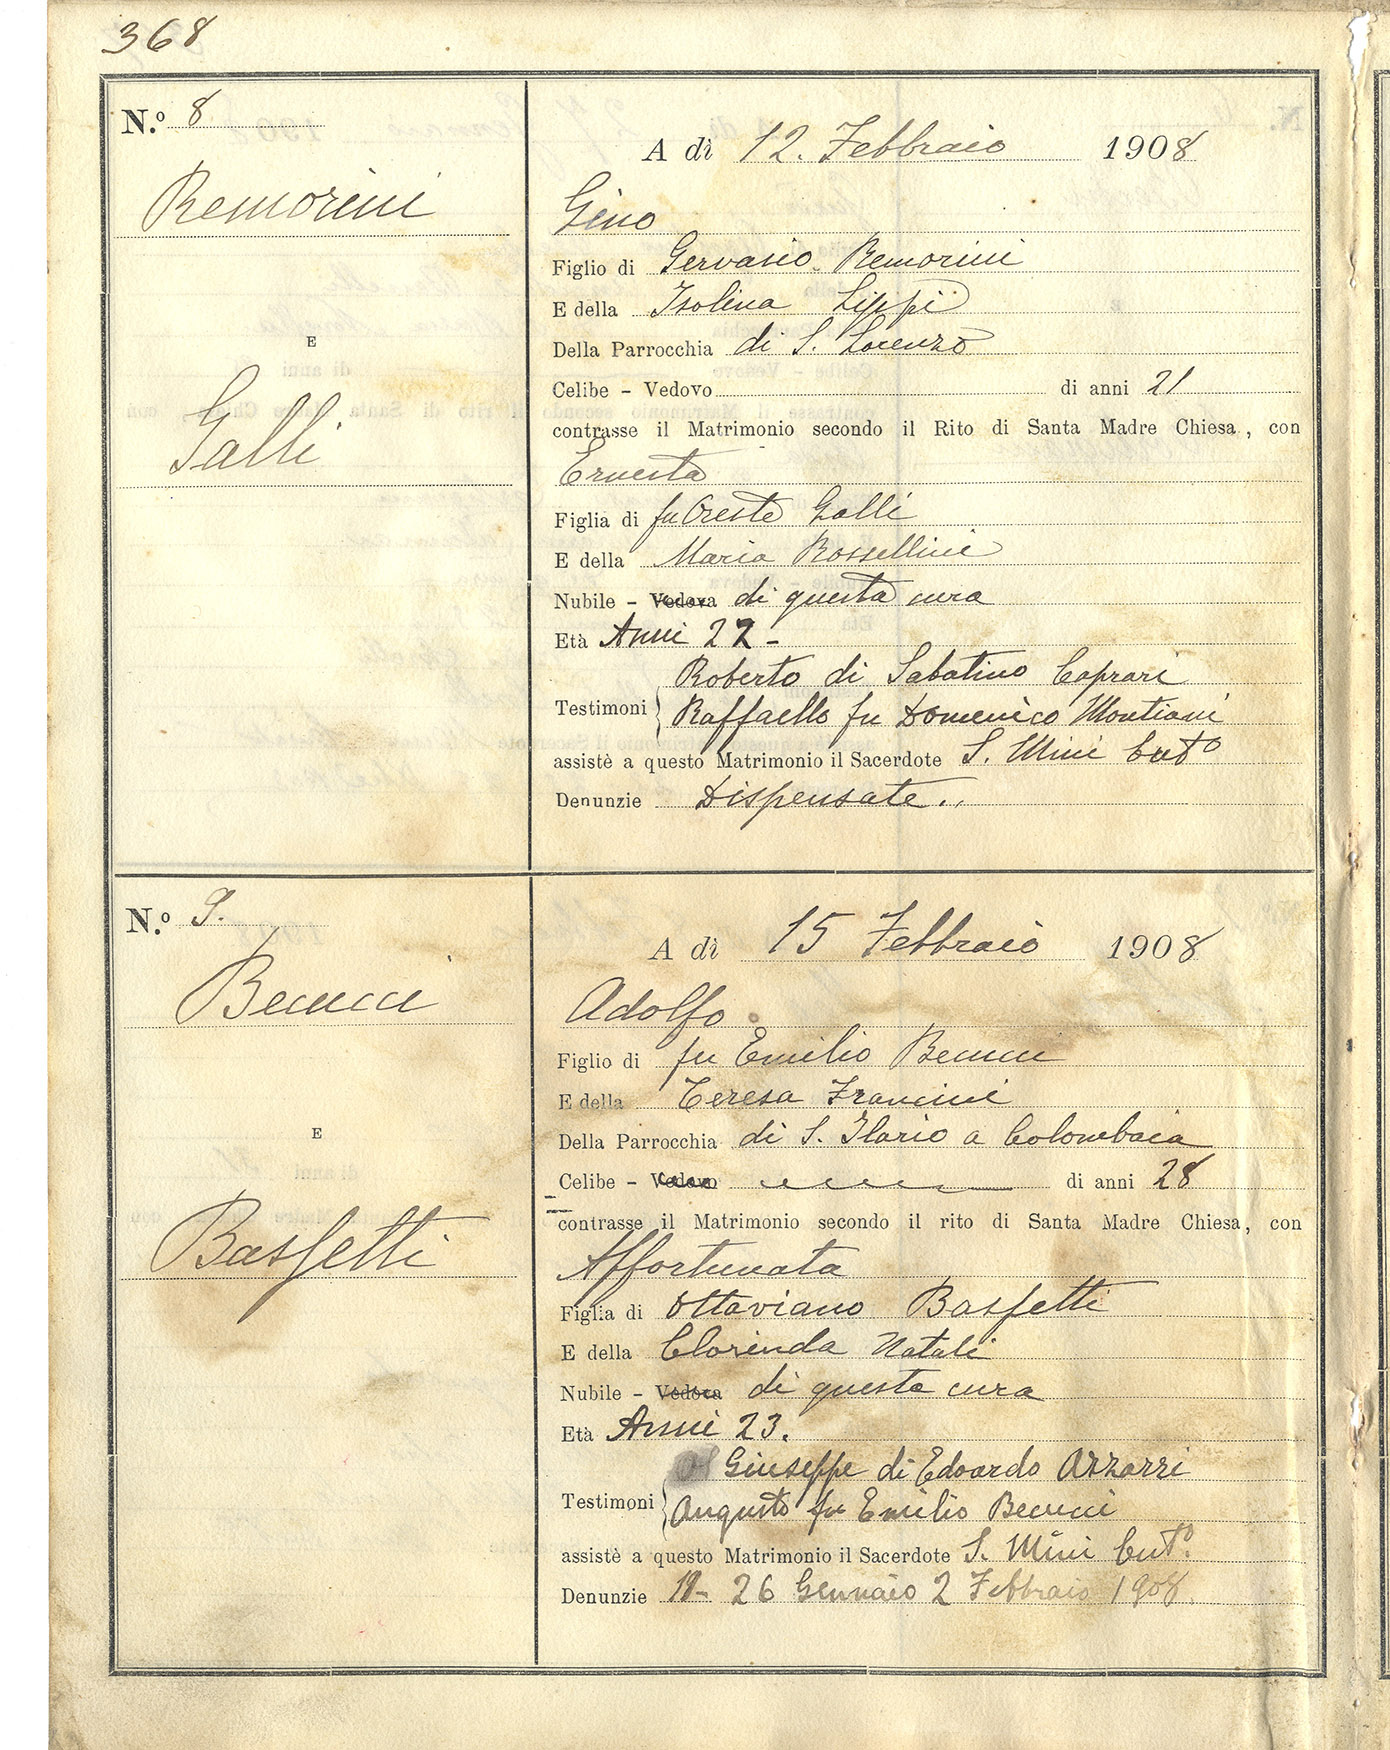 368
N.º 8
Remorini
E
Galli
A dì 12. Febbraio 1908
Gino
Figlio di Gervasio Remorini
E della Isolina Lippi
Della Parrocchia di S. Lorenzo
Celibe - Vedovo di anni 21
contrasse il Matrimonio secondo il Rito di Santa Madre Chiesa, con
Ernesta
Figlia di fu Oreste Galli
E della Maria Rossellini
Nubile - Vedova di questa cura
Età Anni 22 -
Roberto di Sabatino Caprari
Testimoni Raffaello fu Domenico Montiani
assistè a questo Matrimonio il Sacerdote S. Mini Curº
Denunzie Dispensate..
N.º 9.
Becucci
E
Bassetti
A dì 15 Febbraio 1908
Adolfo
Figlio di fu Emilio Becucci
E della Teresa Francini
Della Parrocchia di S. Ilario a Colombaia
Celibe - Vedovo di anni 28
contrasse il Matrimonio secondo il rito di Santa Madre Chiesa, con
Affortunata
Figlia di Ottaviano Bassetti
E della Clorinda Natali
Nubile - Vedova di questa cura
Età Anni 23.
Giuseppe di Edoardo Azzarri
Testimoni Augusto fu Emilio Becucci
assistè a questo Matrimonio il Sacerdote S. Mini
Denunzie 19- 26 Gennaio 2 Febbraio 1908.